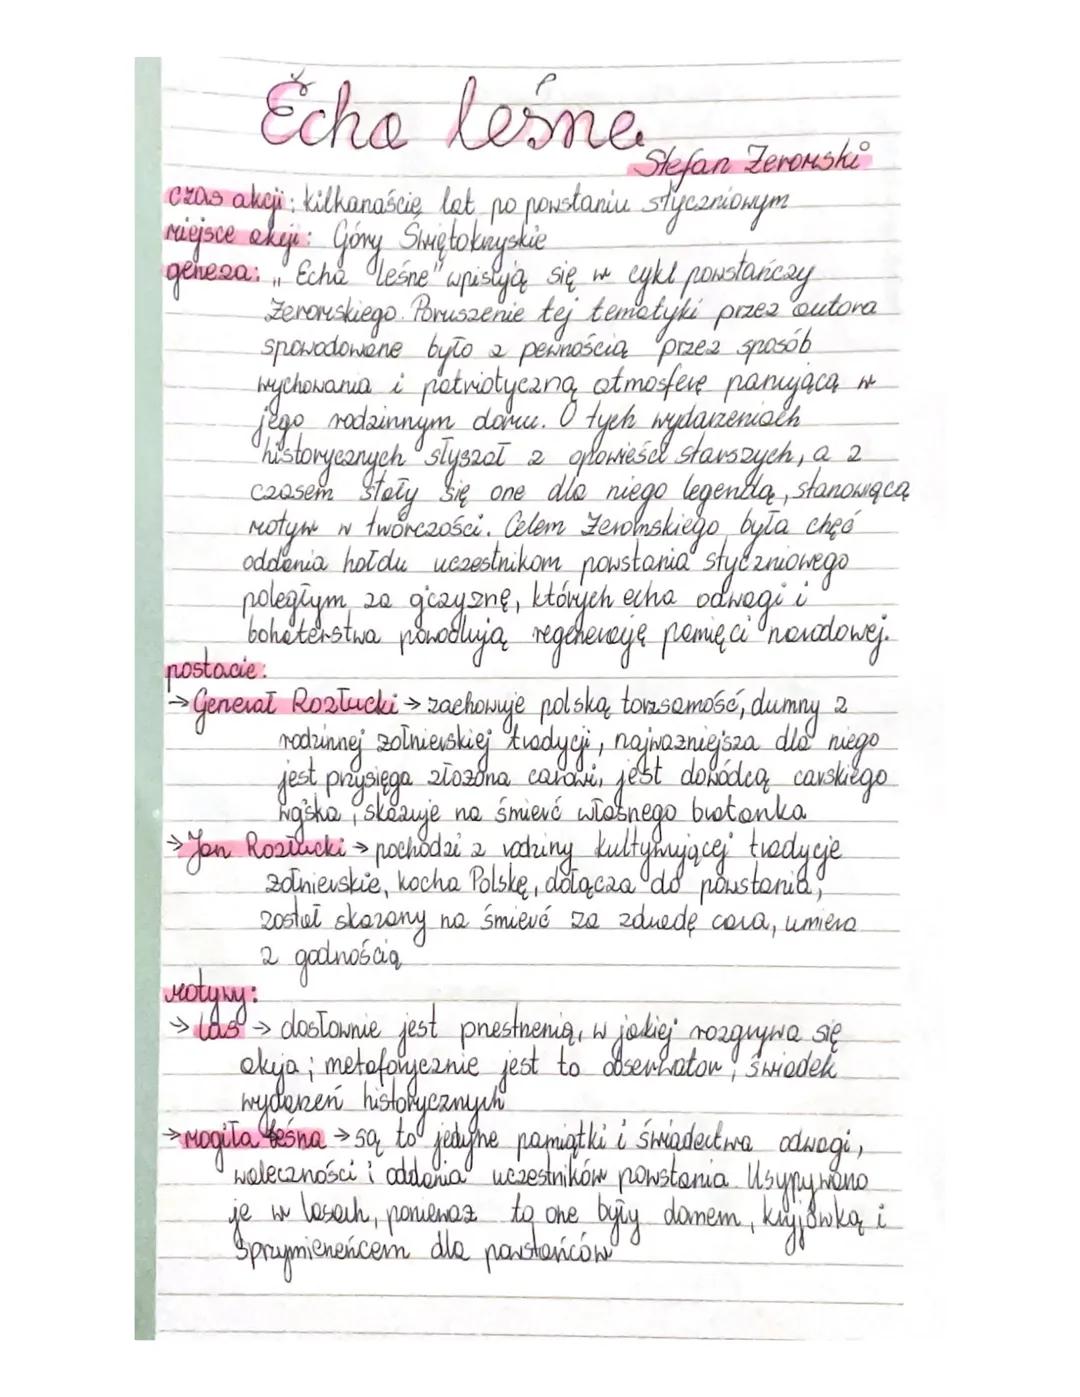 Echa leśne
Stefan Żeromski
czas akcji: kilkanaście lat po powstaniu styczniowym
miejsce akcji: Góry Świętokrzyskie
geneza: „Echa leśne" wpisują się w cykl powstańczy
Żeromskiego. Poruszenie tej tematyki przez autora
spowodowane było z pewnością przez sposób
wychowania i patriotyczną atmosferę panującą w
jego rodzinnym domu. O tych wydarzeniach
historycznych słyszał z opowieści starszych, a z
czasem stały się one dla niego legendą, stanowiącą
motyw w twórczości. Celem Żeromskiego była chęć
oddania hołdu uczestnikom powstania styczniowego
poległym za ojczyznę, których echa odwagi i
bohaterstwa powodują regenerację pamięci narodowej.
postacie:
→ Generał Rozłucki → zachowuje polską tożsamość, dumny z
rodzinnej żołnierskiej tradycji, najważniejsza dla niego
jest przysięga złożona carowi, jest dowódcą carskiego
wojska, skazuje na śmierć własnego bratanka
→ Jan Rozłucki → pochodzi z rodziny kultywującej tradycje
żołnierskie, kocha Polskę, dołącza do powstania,
został skazany na śmierć za zdradę cara, umiera
z godnością
motywy:
→ las → dosłownie jest przestrzenią, w jakiej rozgrywa się
akcja; metaforycznie jest to obserwator, świadek
wydarzeń historycznych
→ mogiła leśna → są to jedyne pamiątki i świadectwa odwagi,
waleczności i oddania uczestników powstania. Usypywano
je w lasach, ponieważ to one były domem, kryjówką i
sprzymierzeńcem dla powstańców